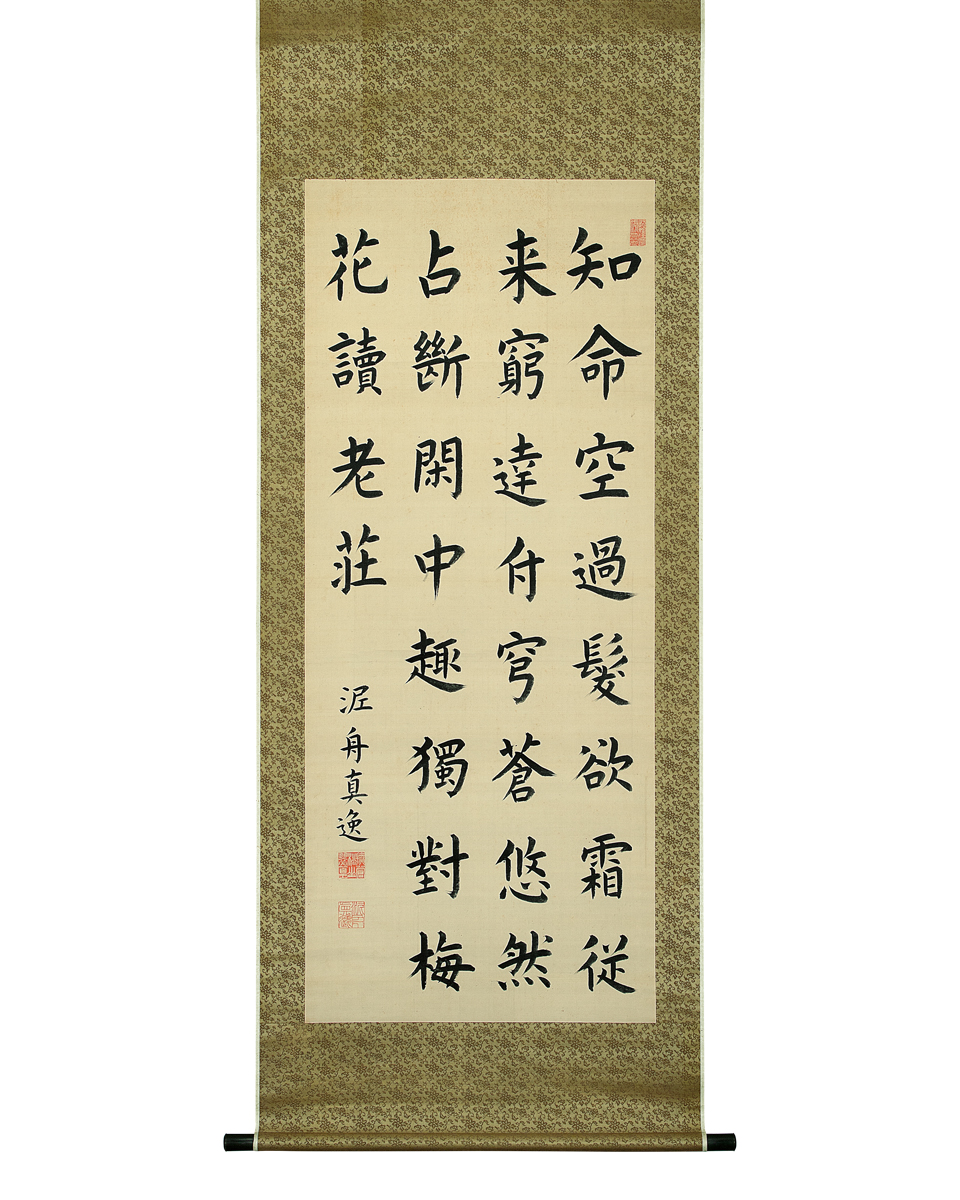 知命空過髮欲霜従
来窮達付穹蒼悠然
占斷閑中趣獨對梅
花讀老莊
泥舟真逸